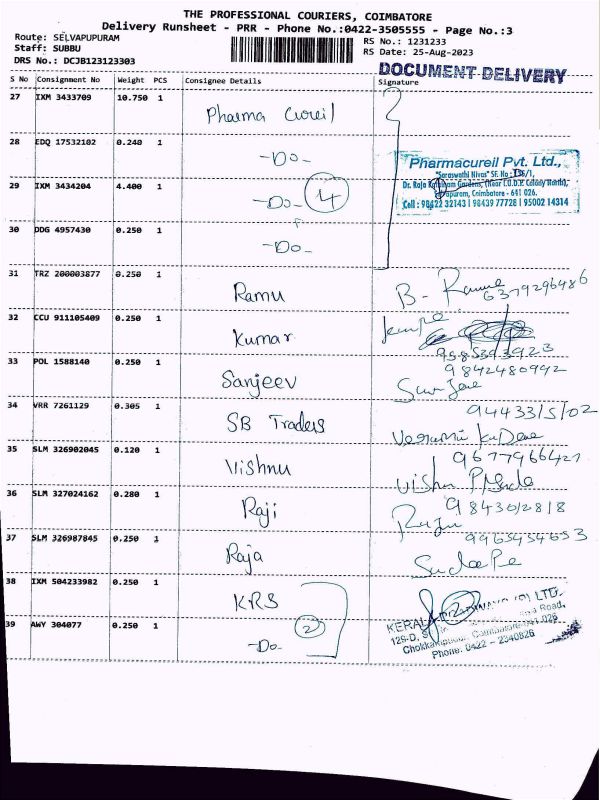 THE PROFESSIONAL COURIERS, COIMBATORE
Delivery Runsheet - PRR - Phone No.:0422-3505555 - Page No.:3
Route: SELVAPUPURAM
RS No.: 1231233
Staff: SUBBU
RS Date: 25-Aug-2023
DRS No.: DCJB123123303
DOCUMENT DELIVERY
S No Consignment No Weight PCS Consignee Details Signature
27 IXM 3433709 10.750 1 Pharma Cureil
28 EDQ 17532102 0.240 1 -Do-
Pharmacureil Pvt. Ltd.,
"Saraswathi Nivas" SF. No:
29 IXM 3434204 4.400 1 -Do- 4
Dr. Raja Gardens, (Near L.U.D.P. Colony North),
Coimbatore - 641 026.
Cell : 98422 32143 | 98439 77728 | 95002 14314
30 DDG 4957430 0.250 1 -Do-
31 TRZ 200003877 0.250 1 Ramu
6379296486
32 CCU 911105409 0.250 1 Kumar
9585393923
33 POL 1588140 0.250 1 Sanjeev
9842480992
34 VRR 7261129 0.305 1 SB Traders
94433151502
35 SLM 326902045 0.120 1 Vishnu
9677966421
36 SLM 327024162 0.280 1 Raji
9843012818
37 SLM 326987845 0.250 1 Raja
38 IXM 504233982 0.250 1 KRS
KERALA ROADWAYS (P) LTD.
Road,
39 AWY 304077 0.250 1 -Do- 2
Coimbatore-641 026
Phone: 0422 - 2340826